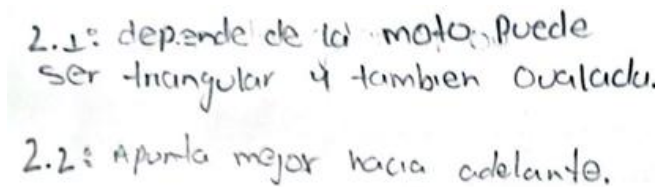 2.1: depende de la moto. Puede
ser triangular y tambien ovalada.
2.2: Apunta mejor hacia adelante.